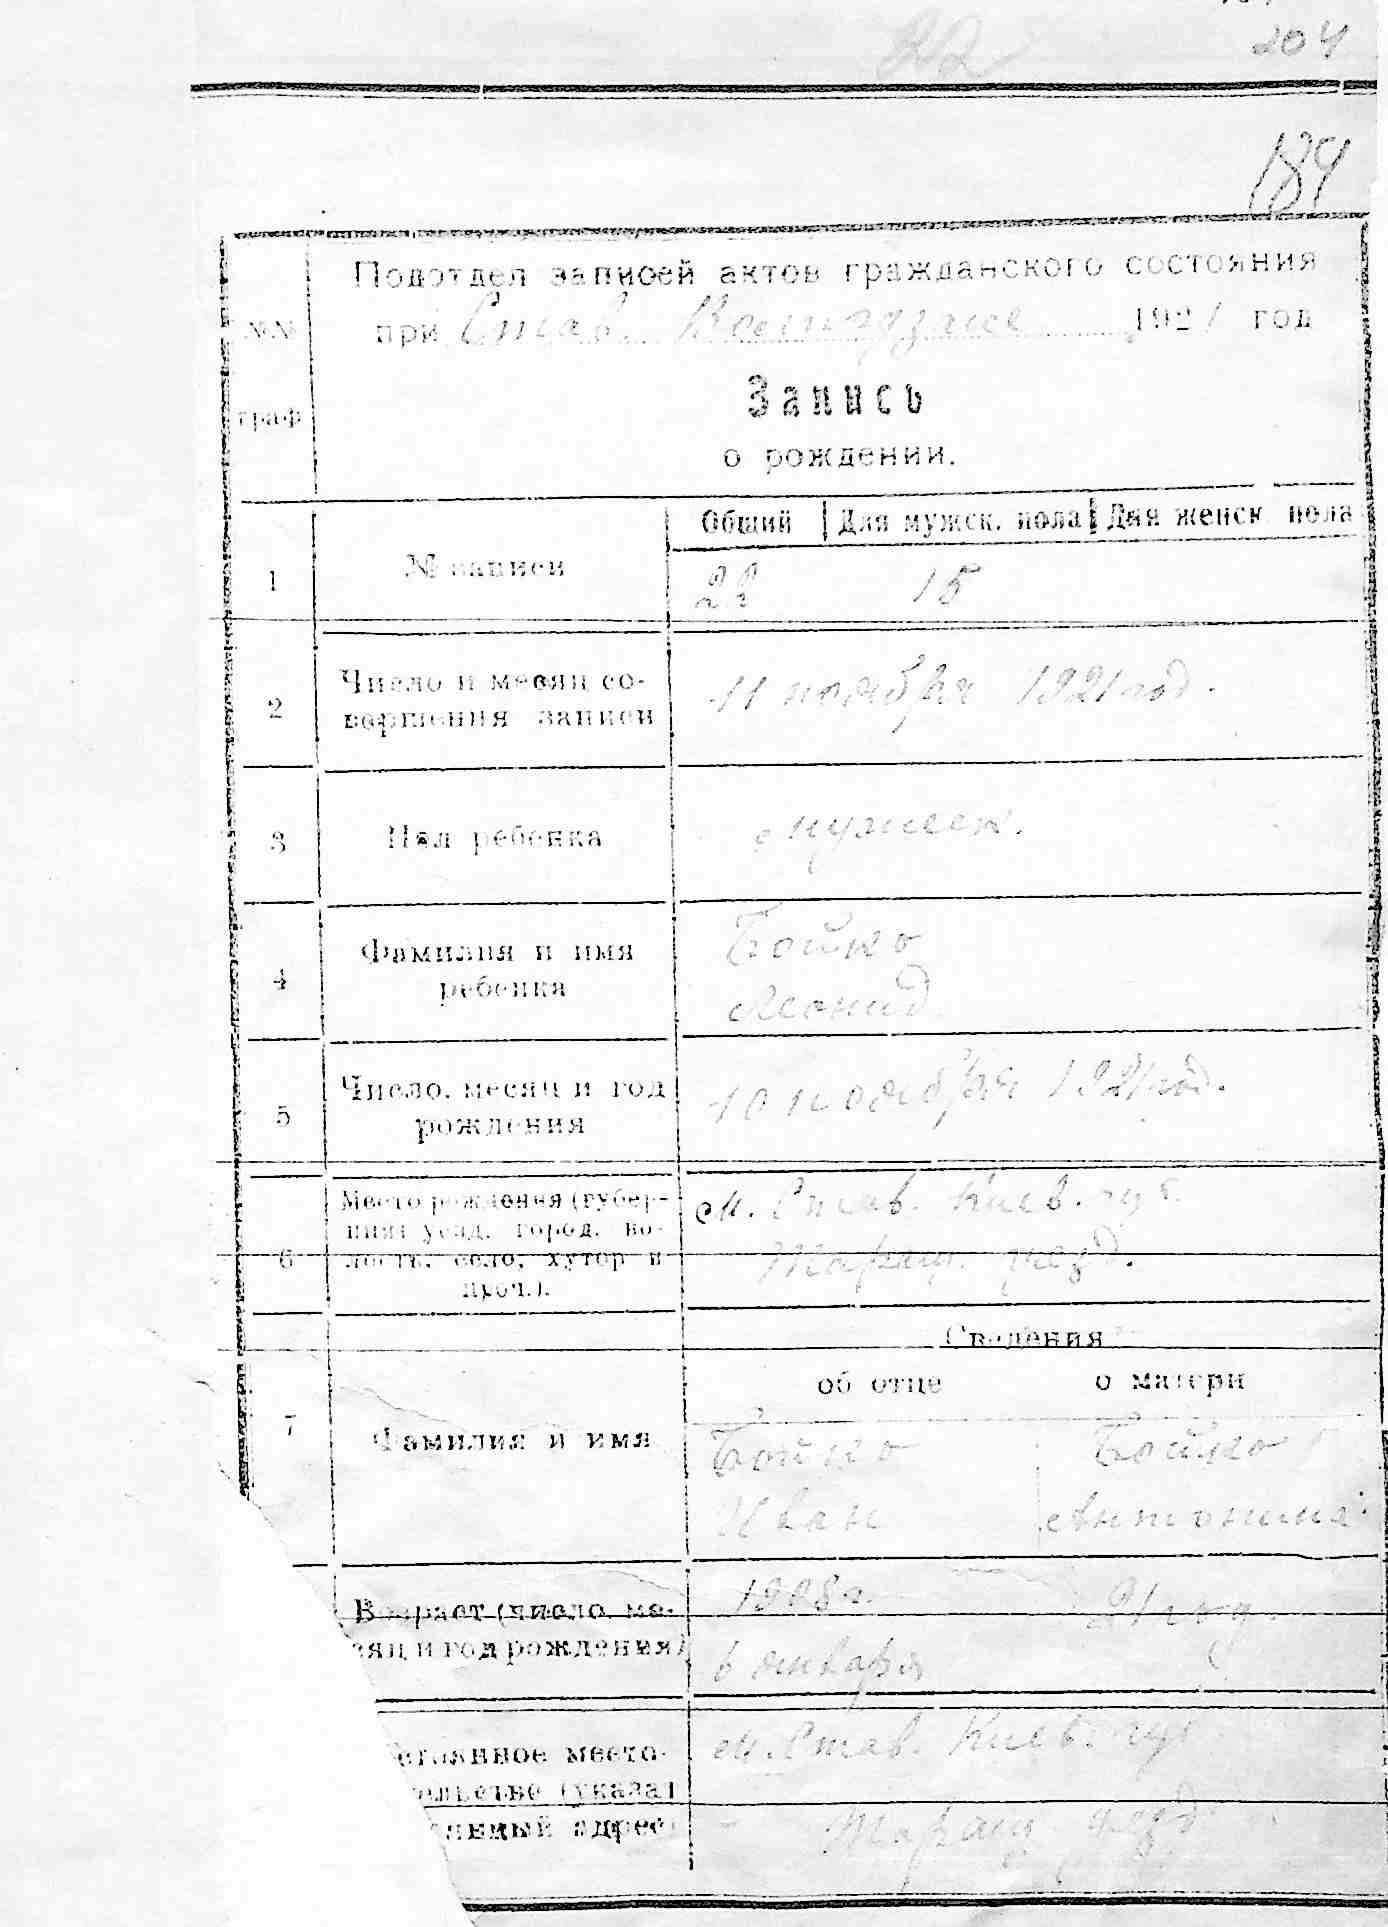 22
204
184
Подотдел записей актов гражданского состояния
№№ при Став. 1921 год
граф
Запись
о рождении.
Общий Для мужск. пола Для женск. пола
1 № записи 22 15
2 Число и месяц со-
вершения записи
11 ноября 1921 год.
3 Пол ребенка мужеск.
4 Фамилия и имя
ребенка
Бойко
Леонид
5 Число, месяц и год
рождения
10 ноября 1921 год.
6 Место рождения (губер-
ния, уезд, город, во-
лость, село, хутор и
проч.).
м. Став. Киев. губ.
Таращ. уезд.
Сведения
об отце о матери
7 Фамилия и имя
Бойко Бойко
Иван Антонина
Возраст (число, ме-
сяц и год рождения)
21 год.
6 января
тоянное место-
ельство (указат
льный адрес)
м. Став. Киев. губ
Таращ уезд